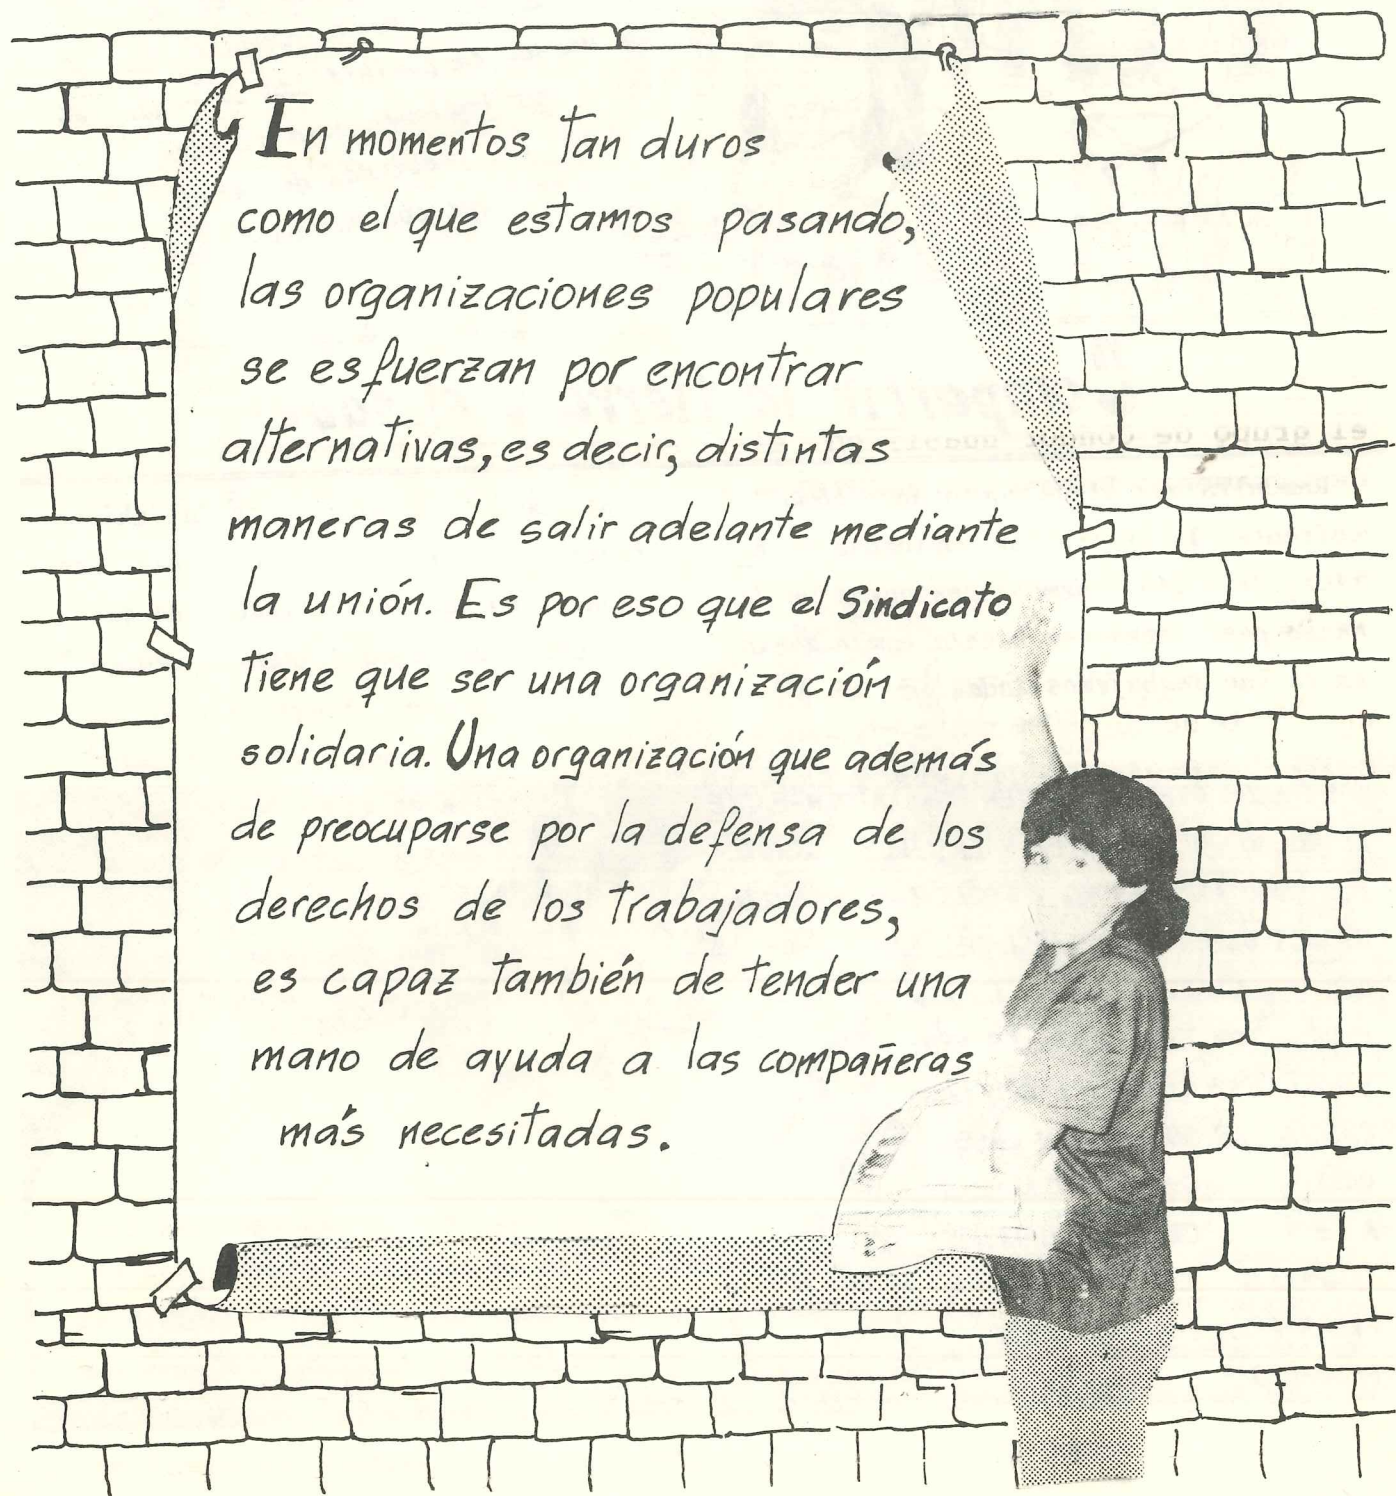 En momentos tan duros
como el que estamos pasando,
las organizaciones populares
se esfuerzan por encontrar
alternativas, es decir, distintas
maneras de salir adelante mediante
la unión. Es por eso que el Sindicato
tiene que ser una organización
solidaria. Una organización que además
de preocuparse por la defensa de los
derechos de los trabajadores,
es capaz también de tender una
mano de ayuda a las compañeras
más necesitadas.